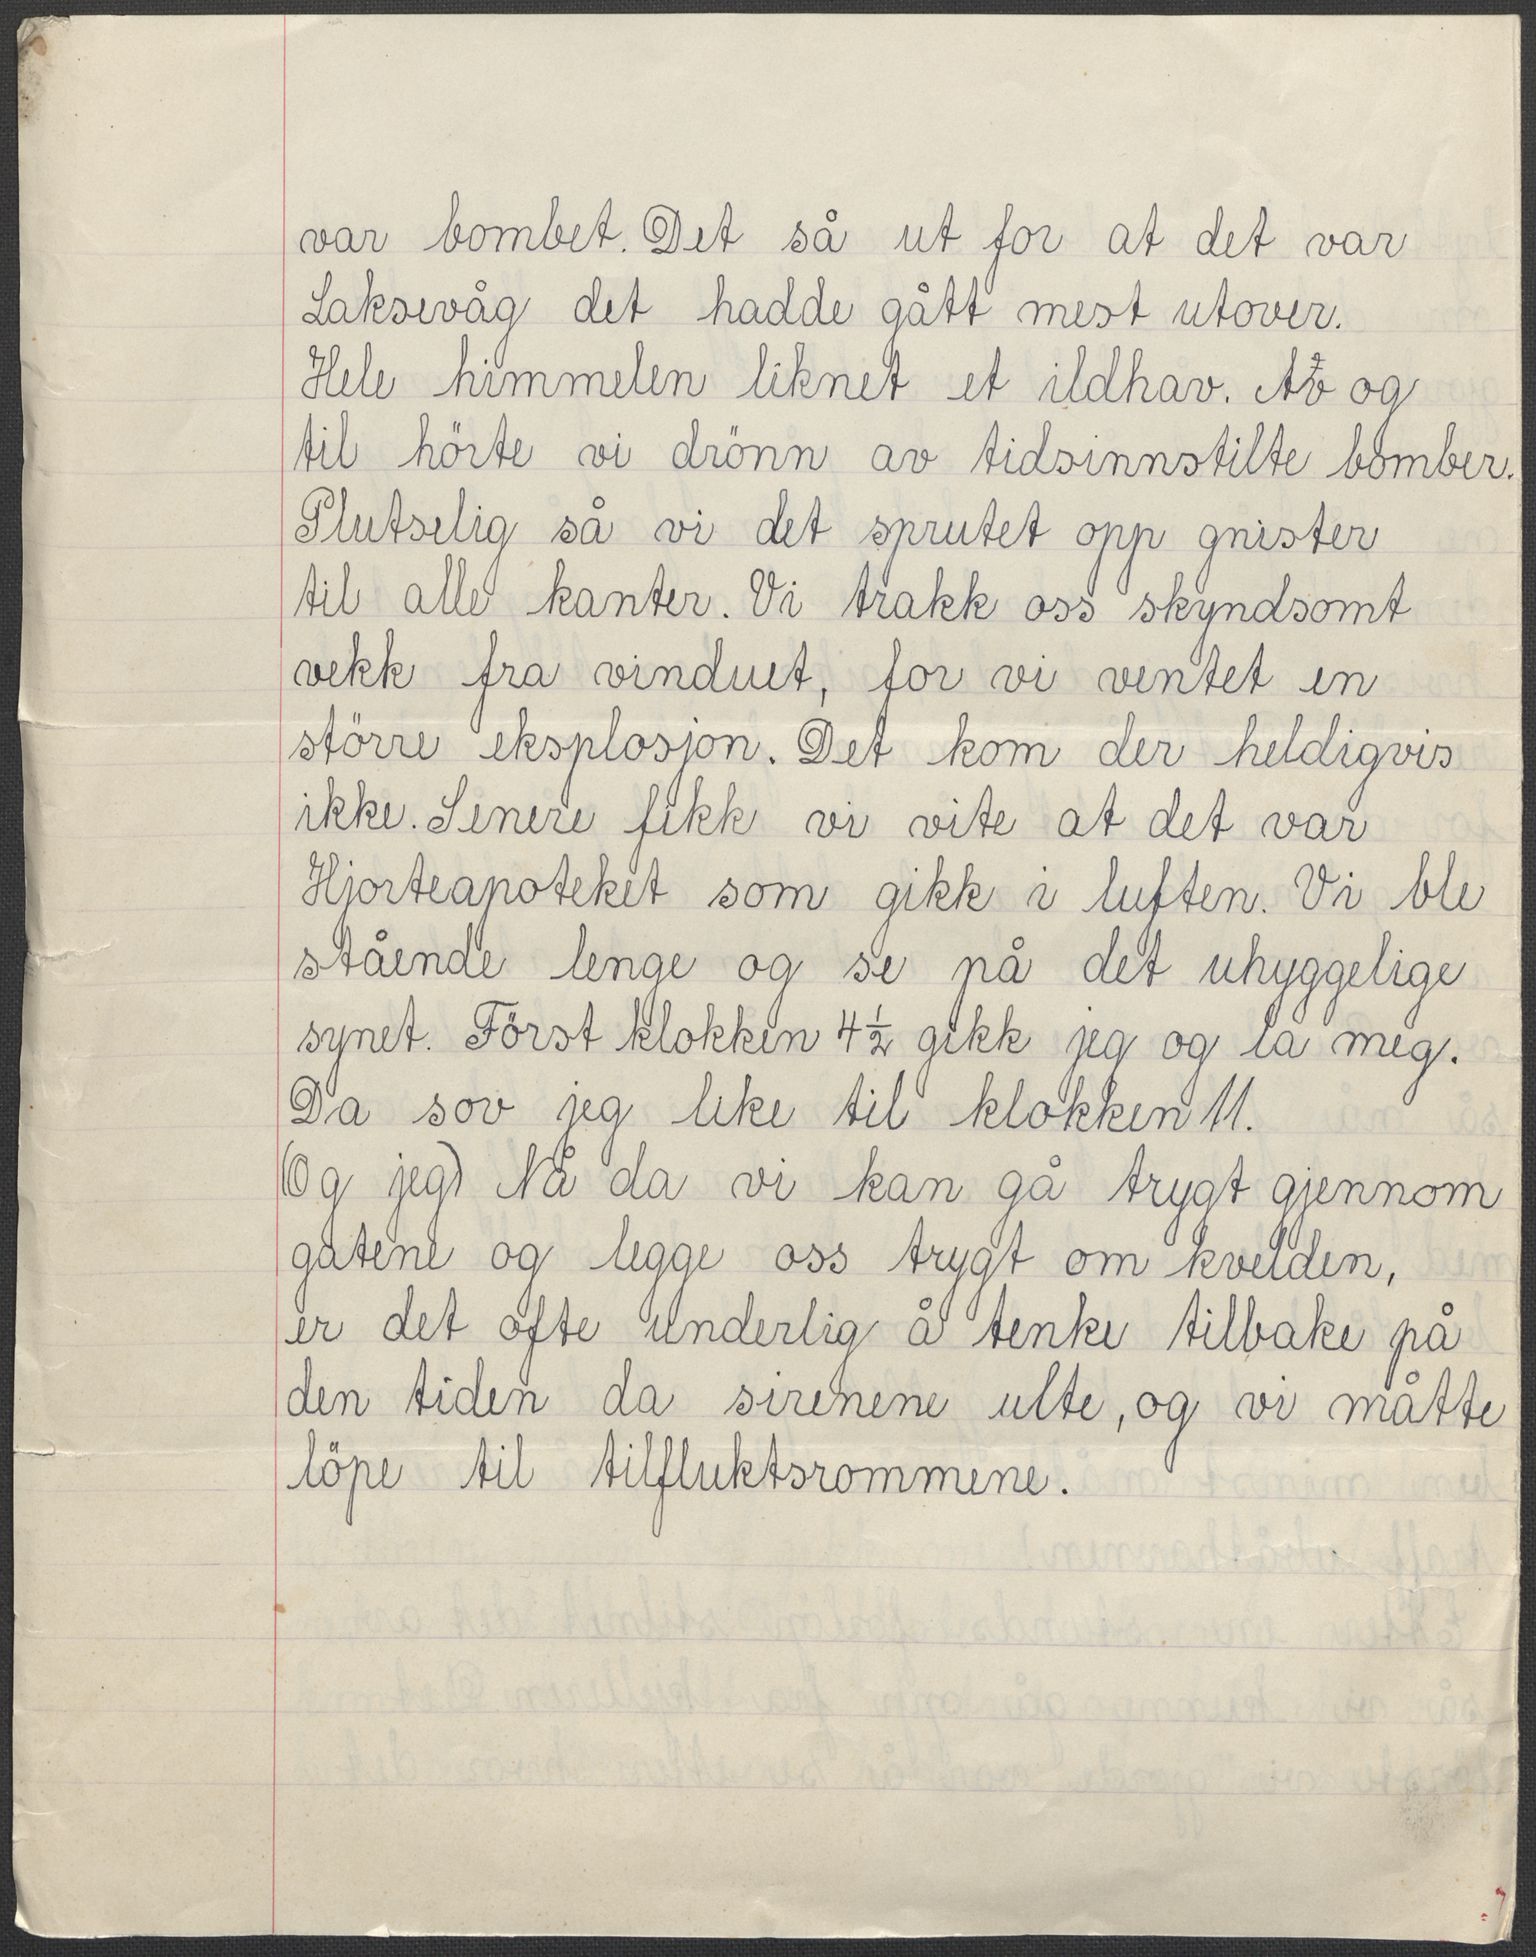 var bombet. Det så ut for at det var
Laksevåg det hadde gått mest utover.
Hele himmelen liknet et ildhav. Av og
til hörte vi drönn av tidsinnstilte bomber.
Plutselig så vi det sprutet opp gnister
til alle kanter. Vi trakk oss skyndsomt
vekk fra vinduet, for vi ventet en
större eksplosjon. Det kom der heldigvis
ikke. Senere fikk vi vite at det var
Hjorteapoteket som gikk i luften. Vi ble
stående lenge og se på det uhyggelige
synet. Först klokken 4½ gikk jeg og la meg.
Da sov jeg like til klokken 11.
(Og jeg) Nå da vi kan gå trygt gjennom
gatene og legge oss trygt om kvelden,
er det ofte underlig å tenke tilbake på
den tiden da sirenene ulte, og vi måtte
löpe til tilfluktsrommene.